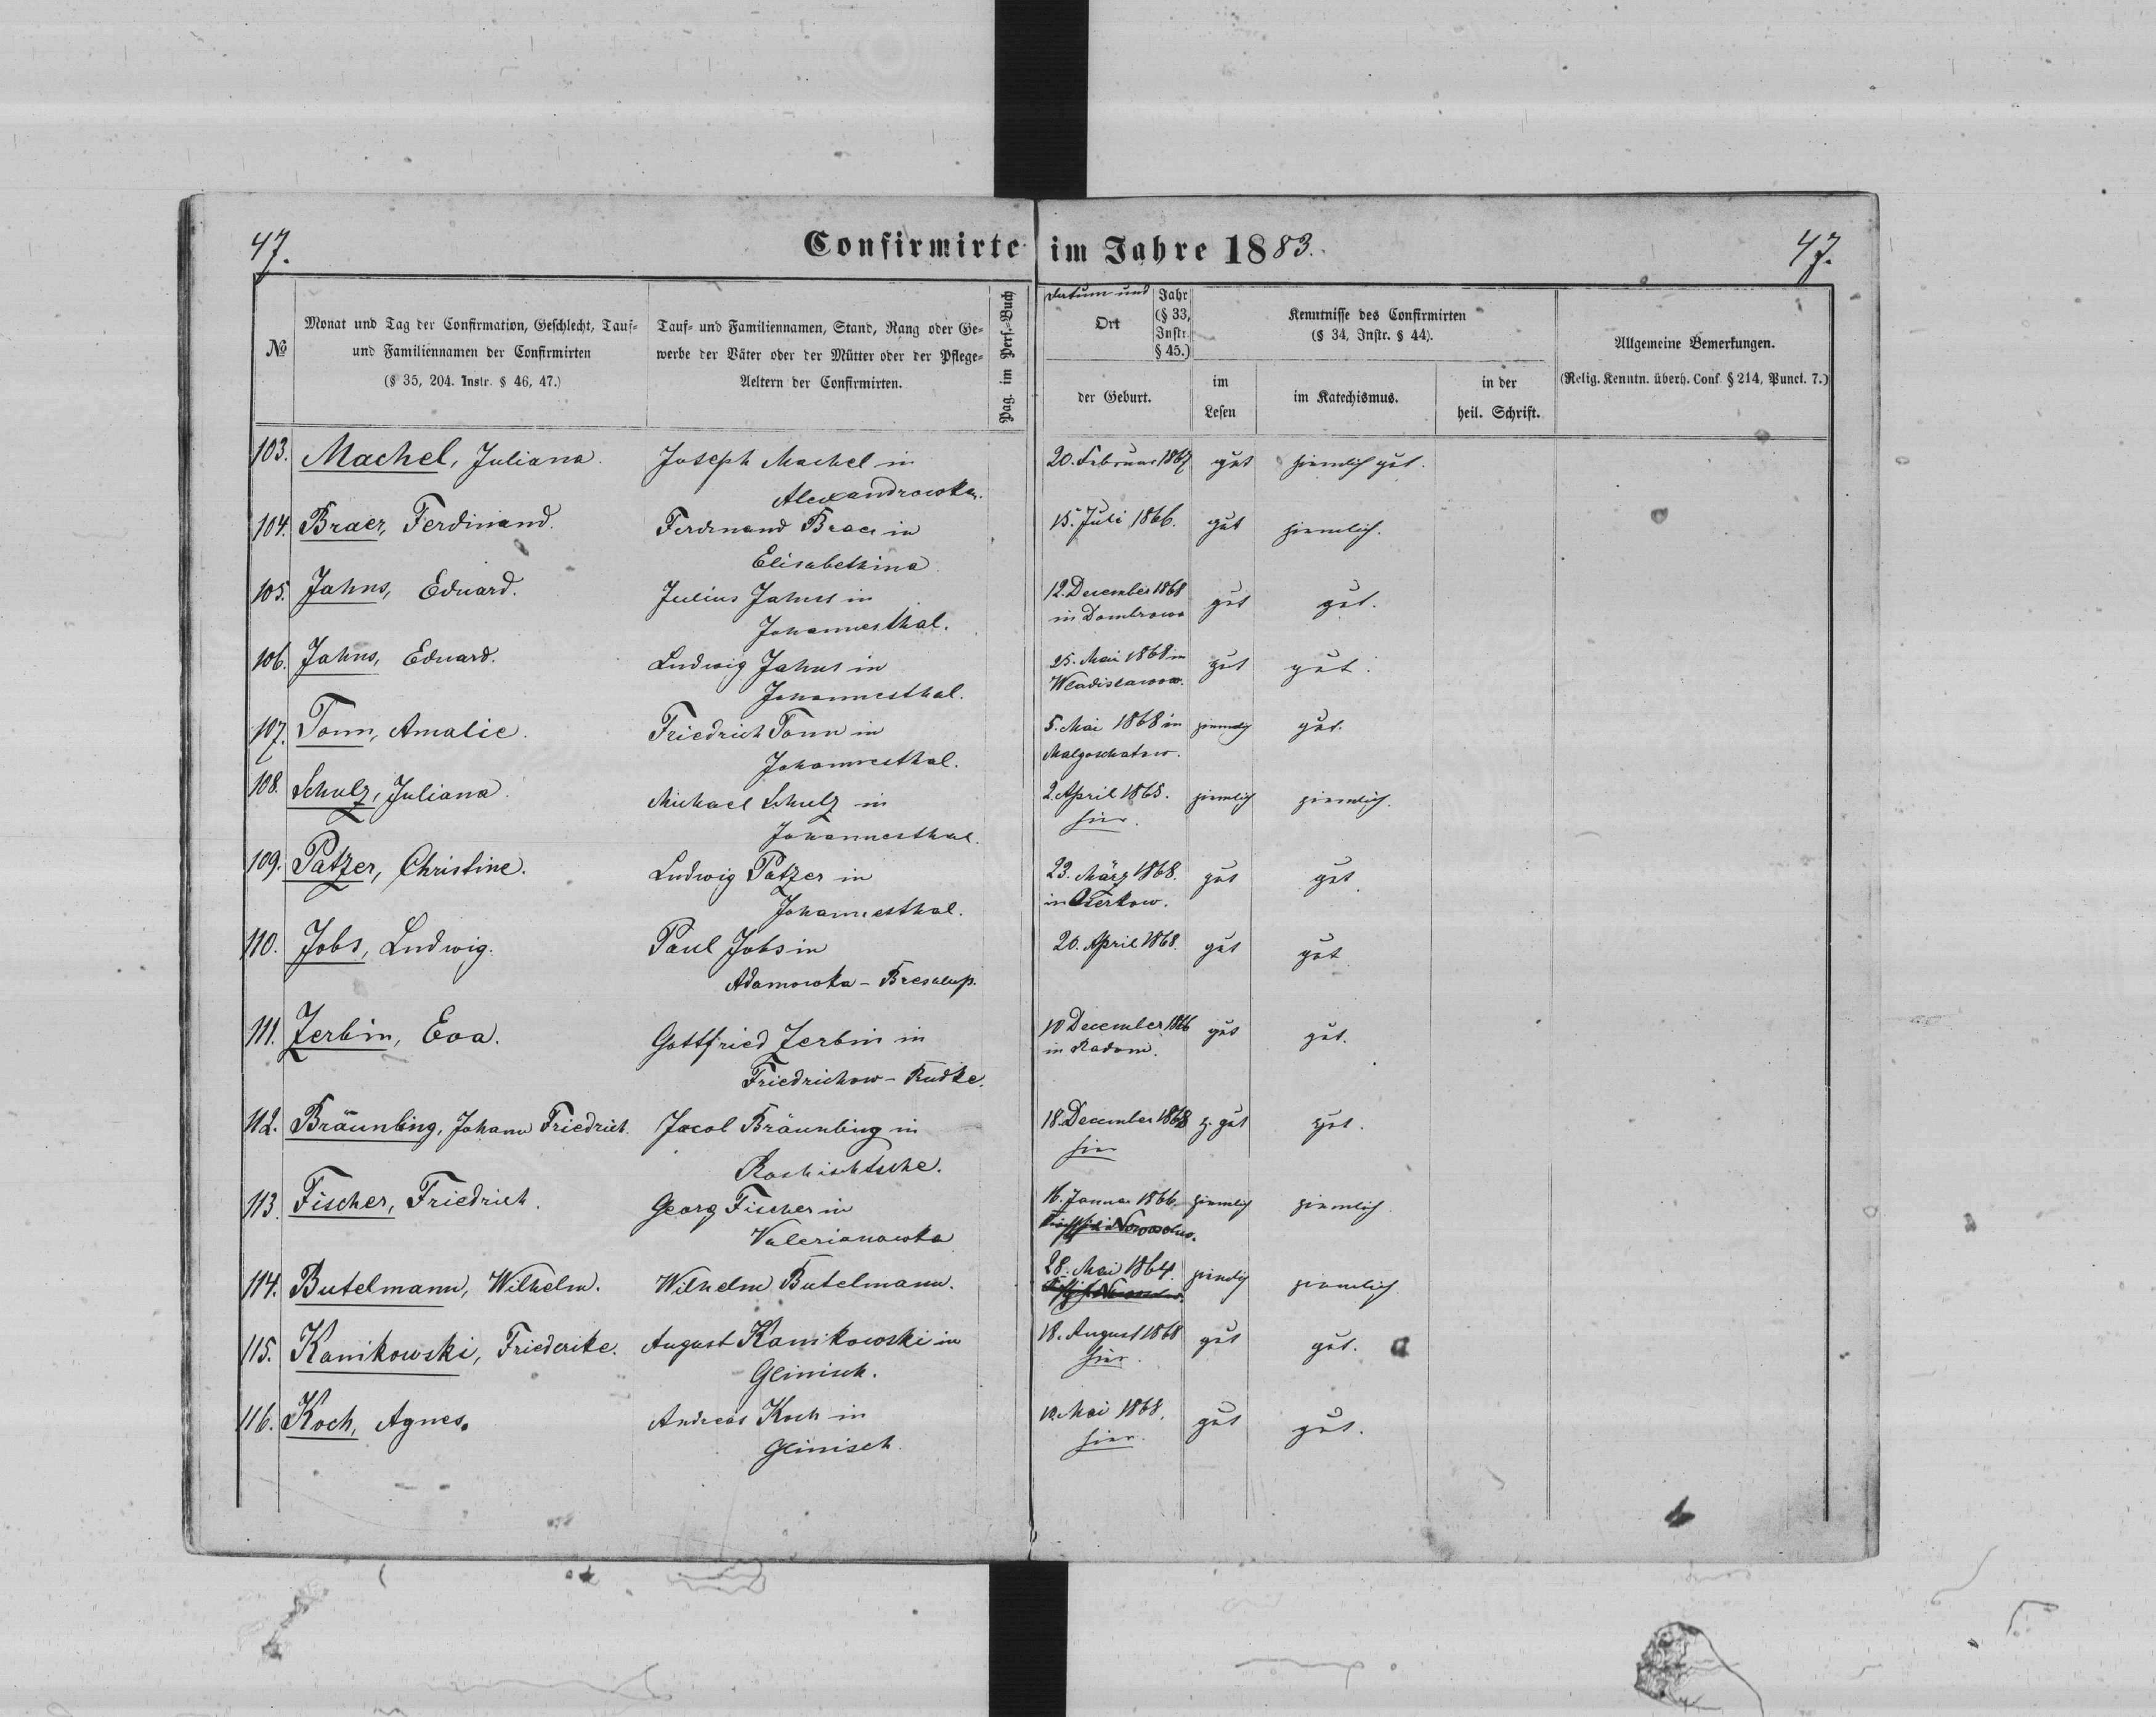 47.
Confirmirte im Jahre 1883.
47.
№
Monat und Tag der Confirmation, Geschlecht, Tauf-
und Familiennamen der Confirmirten
(§ 35, 204. Instr. § 46, 47.)
Tauf- und Familiennamen, Stand, Rang oder Ge-
werbe der Väter oder der Mütter oder der Pflege-
Aeltern der Confirmirten.
Pag. im Pers.-Buch
Datum und
Ort
Jahr
(§ 33,
Instr.
§ 45.)
der Geburt.
Kenntnisse des Confirmirten
(§ 34, Instr. § 44).
im
Lesen
im Katechismus.
in der
heil. Schrift.
Allgemeine Bemerkungen.
(Relig. Kenntn. überh. Conf. § 214, Punct. 7.)
103. Machel, Juliana. Joseph Machel in 20. Februar 1867 gut ziemlich gut.
Alexandrowka.
104. Braer, Ferdinand. Ferdinand Braer in 15. Juli 1866. gut ziemlich.
Elisabethina.
105. Jahns, Eduard. Julius Jahns in 12. December 1868 gut gut.
Johannesthal. in Dombrowa
106. Jahns, Eduard. Ludwig Jahns in 25. Mai 1868 in gut gut.
Johannesthal. Wladislawow.
107. Tonn, Amalie. Friedrich Tonn in 5. Mai 1868 in ziemlich gut.
Johannesthal. Malgoschatow.
108. Schulz, Juliana. Michael Schulz in 2. April 1865. ziemlich ziemlich.
Johannesthal. hier.
109. Patzer, Christine. Ludwig Patzer in 23. März 1868. gut gut
Johannesthal. in Oserkow.
110. Jobs, Ludwig. Paul Jobs in 20. April 1868. gut gut
Adamowka -
111. Zerbin, Eva. Gottfried Zerbin in 10 December 1866 gut gut.
Friedrichow - Rudke. in Radom.
112. Bräunling, Johann Friedrich. Jacob Bräunling in 18. December 1868 z. gut gut.
Roschischtsche. hier
113. Fischer, Friedrich. Georg Fischer in 16. Januar 1866. ziemlich ziemlich.
Valerianowka
114. Butelmann, Wilhelm. Wilhelm Butelmann. 28. Mai 1864. ziemlich ziemlich
115. Kanikowski, Friederike. August Kanikowski in 18. August 1868 gut gut.
Glinisch. hier.
116. Koch, Agnes. Andreas Koch in 10. Mai 1868. gut gut.
Glinisch. hier.